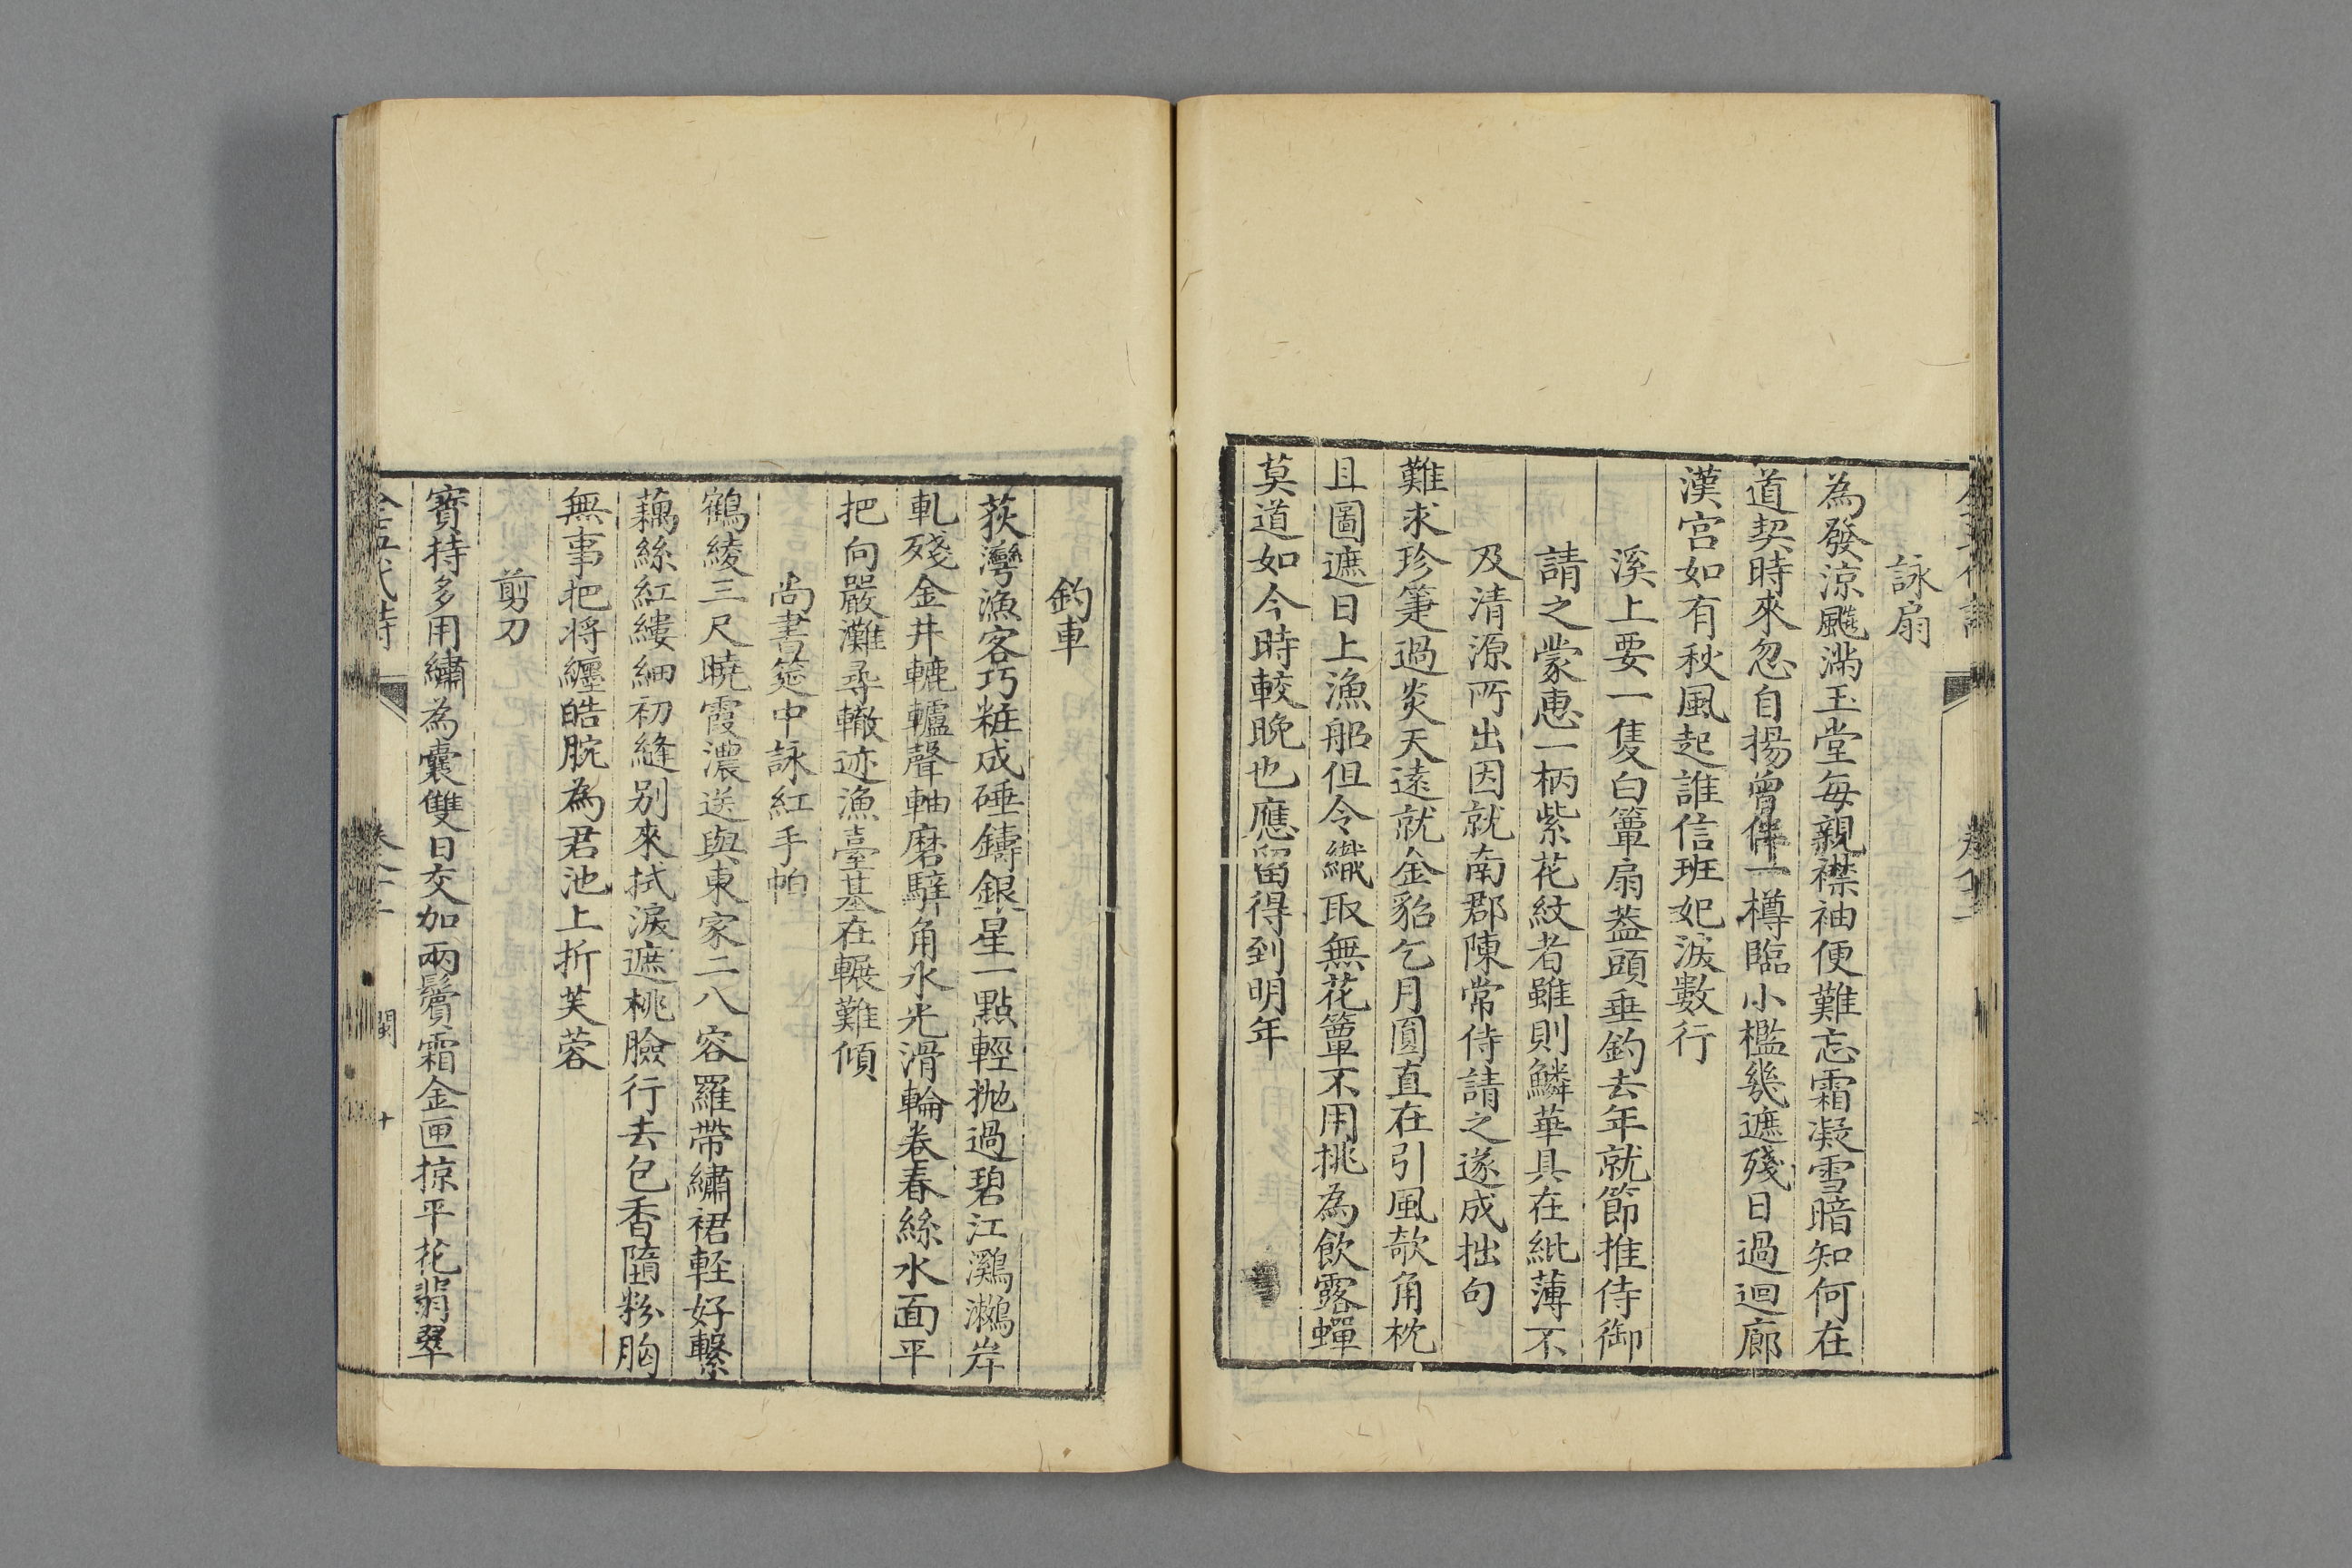 詠扇
為發涼飈滿玉堂每親襟袖便難忘霜凝雪暗知何在
道契時來忽自揚曾伴一樽臨小檻幾遮殘日過迴廊
漢宮如有秋風起誰信班妃淚數行
溪上要一隻白簟扇葢頭垂釣去年就節推侍御
請之蒙惠一柄紫花紋者雖則鱗華具在紕薄不
及清源所出因就南郡陳常侍請之遂成拙句
難求珍箑過炎天遠就金貂乞月圓直在引風欹角枕
且圖遮日上漁船但令織取無花簟不用挑為飲露蟬
莫道如今時較晚也應留得到明年
釣車
荻灣漁客巧粧成硾鑄銀星一點輕抛過碧江鸂𪆟岸
軋殘金井轆轤聲軸磨騂角氷光滑輪卷春絲水面平
把向嚴灘尋轍迹漁臺基在輾難傾
尚書筵中詠紅手帕
鶴綾三尺曉霞濃送與東家二八容羅帶繡裙輕好繫
藕絲紅縷細初縫别來拭淚遮桃臉行去包香隨粉胸
無事把將纏皓腕為君池上折芙蓉
剪刀
寳持多用繡為囊雙日交加兩鬢霜金匣掠平花翡翠
十